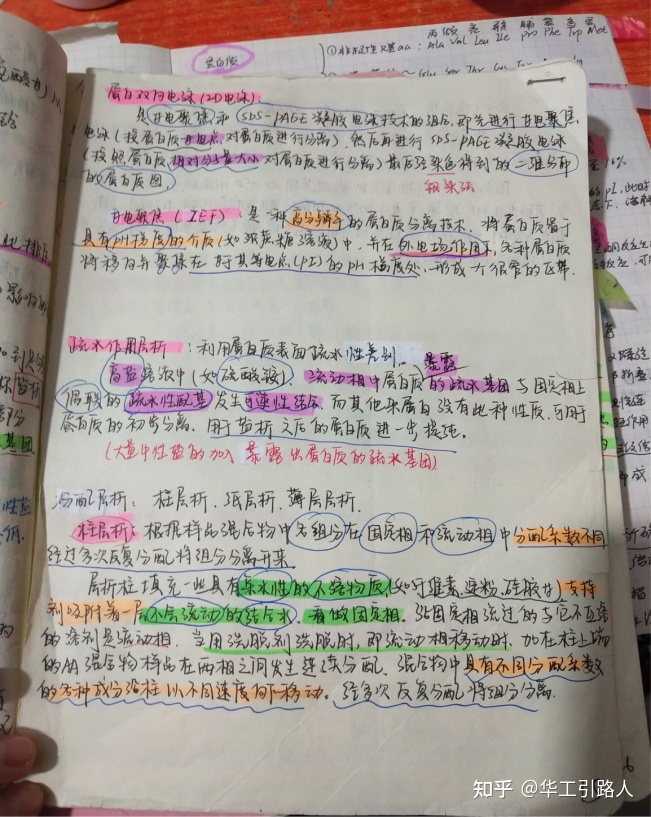 丙 缬 亮 异 脯 苯 色 蛋
Ala Val Leu Ile pro Phe Trp Met
蛋白质
蛋白双向电泳(2D电泳):
是等电聚焦和SDS-PAGE凝胶电泳技术的组合,即先进行等电聚焦
电泳(按蛋白质等电点对蛋白质进行分离),然后再进行SDS-PAGE凝胶电泳
(按照蛋白质相对分子量大小对蛋白质进行分离)最后经染色得到的二维分布
的蛋白质图. 银染法
等电聚焦(IEF):是一种高分辨率的蛋白质分离技术.将蛋白质置于
具有pH梯度的介质(如浓蔗糖溶液)中,并在外电场作用下,各种蛋白质
将移向并聚集在等于其等电点(PI)的pH梯度处,形成一个很窄的区带.
疏水作用层析:利用蛋白质表面疏水性差别...
暴露
高盐溶液中(如硫酸铵),流动相中蛋白质的疏水基团与固定相上
偶联的疏水性配基发生可逆性结合,而其他杂蛋白没有此种性质,可用于
蛋白质的初步分离.用于盐析之后的蛋白质进一步提纯.
(大量中性盐的加入 暴露出蛋白质的疏水基团)
分配层析:柱层析.纸层析.薄层层析.
柱层析:根据样品混合物中各组分在固定相和流动相中分配系数不同
经过多次反复分配将组分分离开来
层析柱填充一些具有亲水性的不溶物质(如纤维素,淀粉,硅胶等)支持
剂吸附着一层不会流动的结合水,看做固定相.沿固定相流过的与它不互溶
的溶剂是流动相.当用洗脱剂洗脱时,即流动相移动时.加在柱上端
的AA混合物样品在两相之间发生连续分配,混合物中具有不同分配系数
的各种成分沿柱以不同速度向下移动.经多次反复分配将组分分离.
知乎 @华工引路人